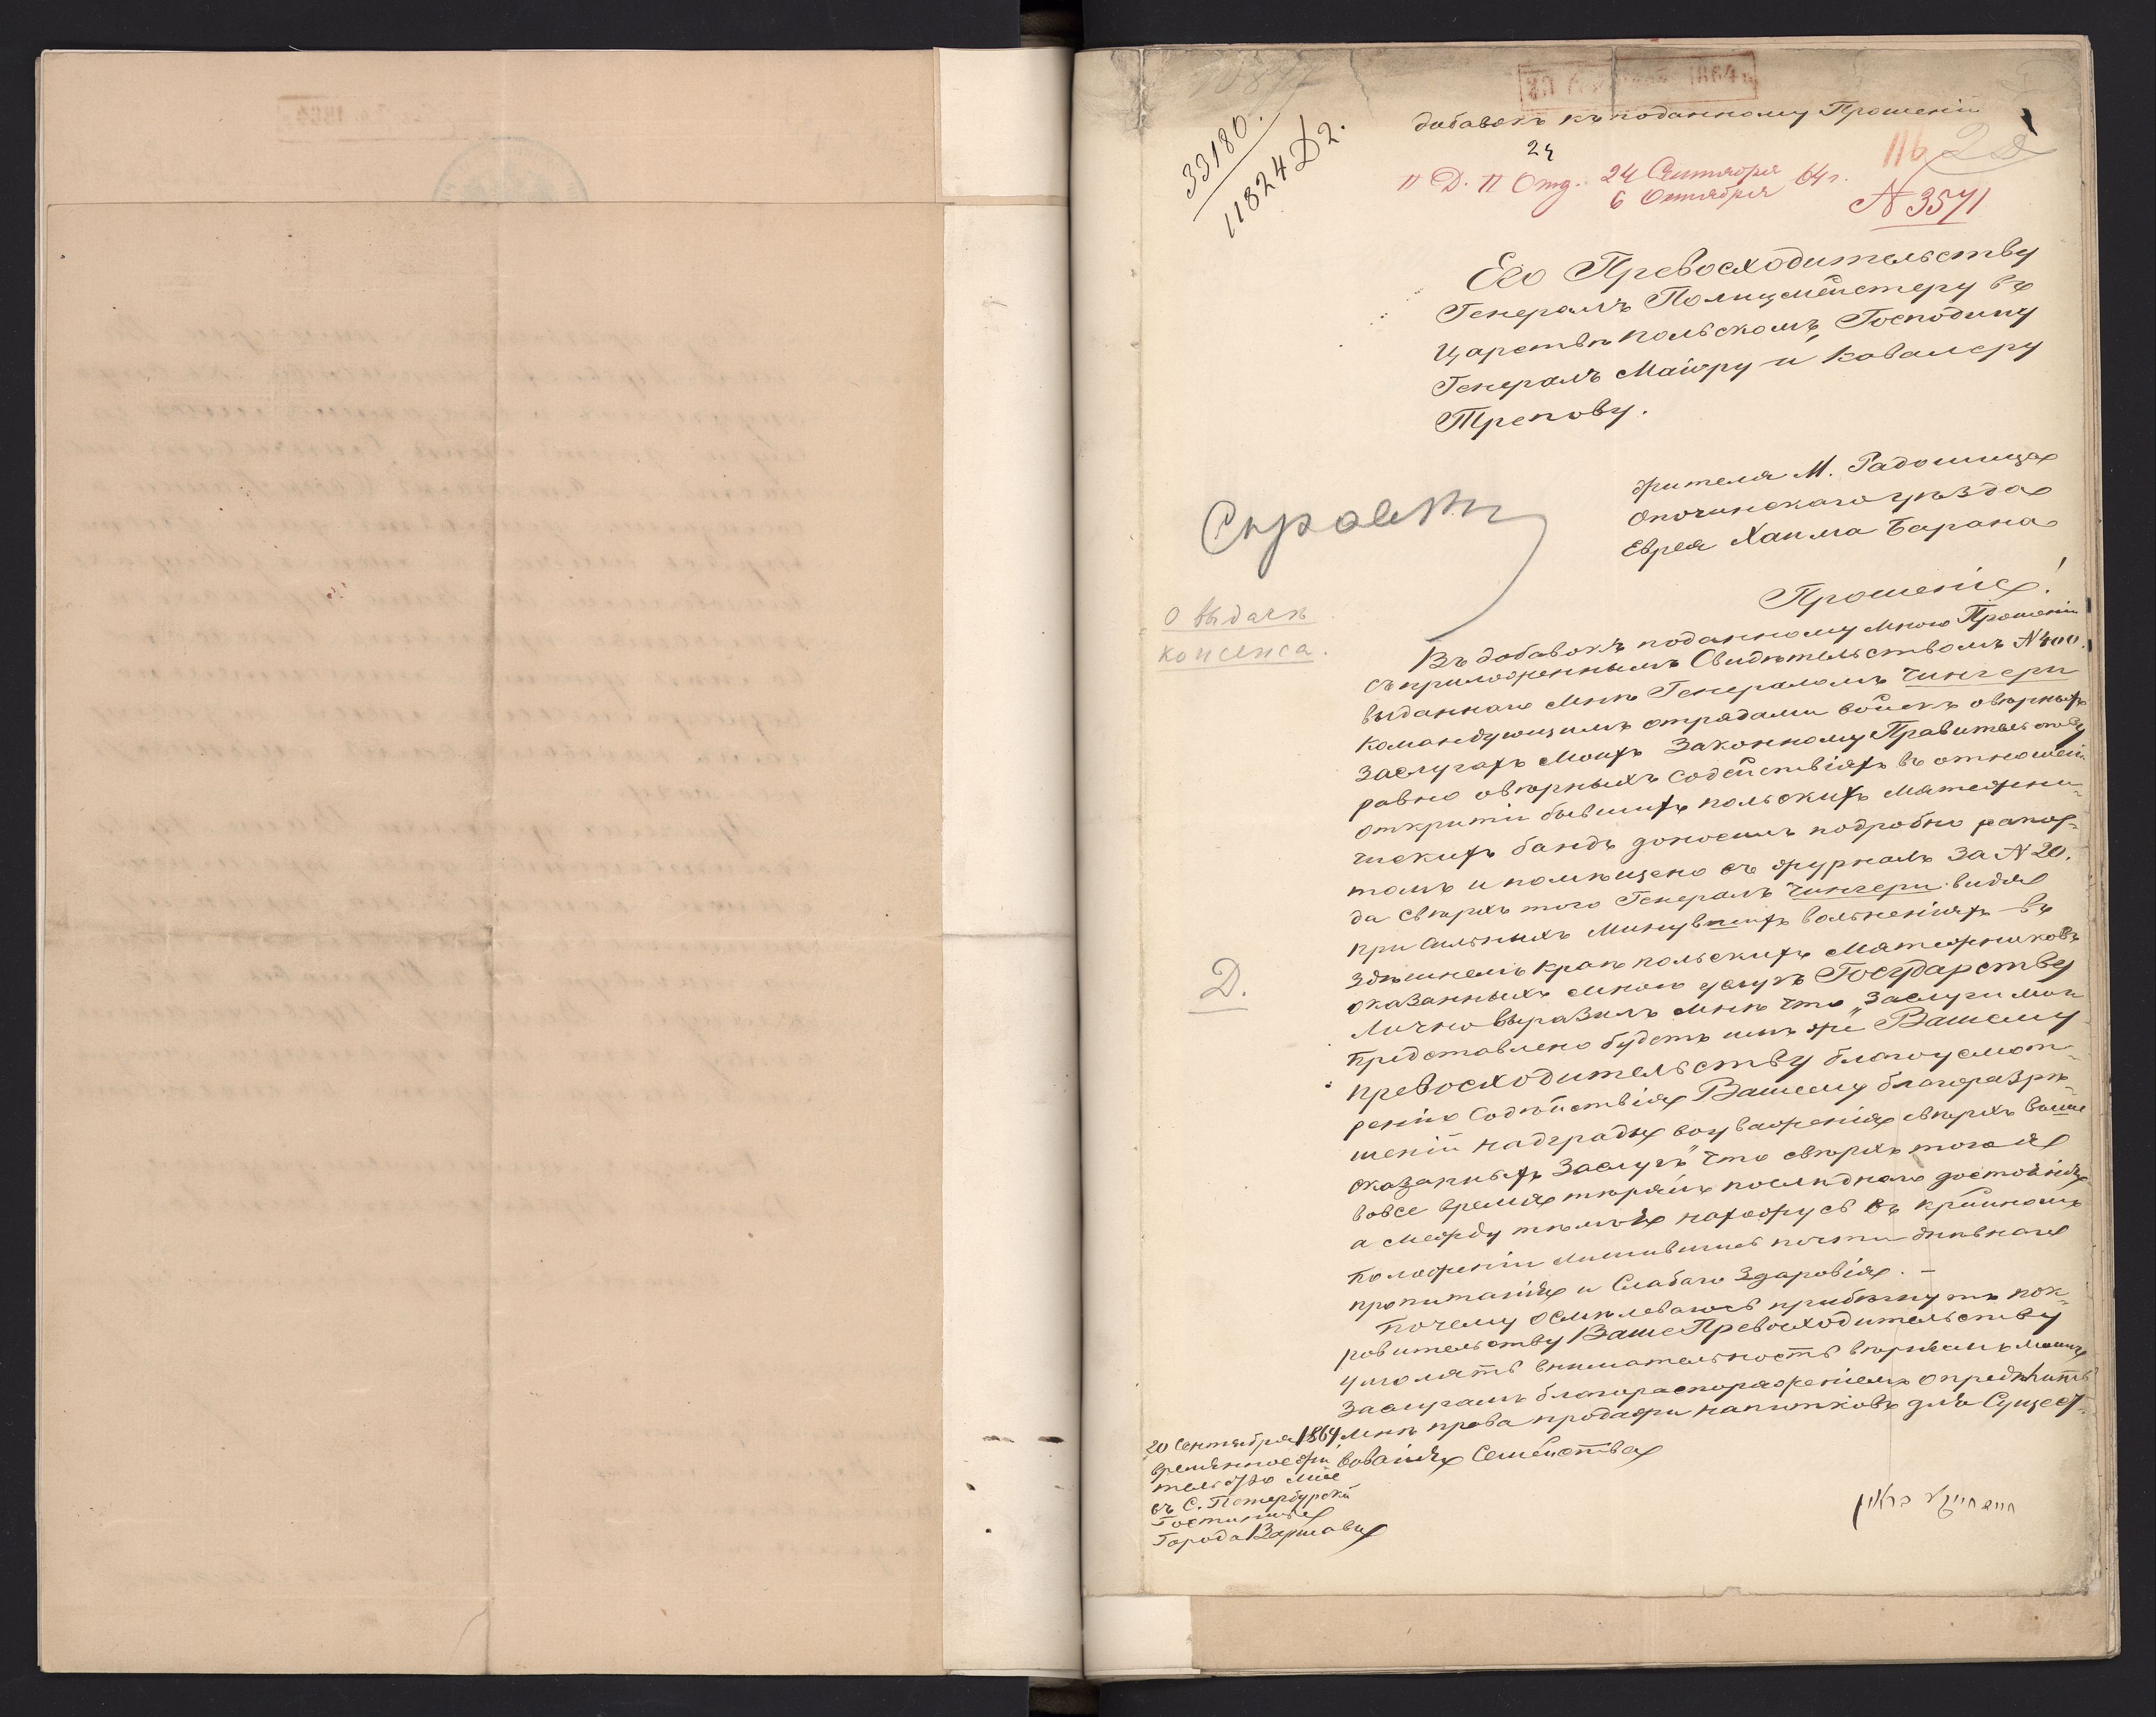 33180.
11824 Д 2.
1864
добавокъ къ поданному Прошенію
24
116
II Д. II Отд. 24 Сентября 64 г.
6 Октября
N 3571
Его Превосходительству
Генералъ Полицмейстеру въ
Царствѣ Польскомъ, Господину
Генералъ Маіору и Кавалеру
Трепову.
жителя М. Радошицахъ
Опочинскаго уѣзда
Еврея Хаима Барана
Справк
О выдачѣ
консенса.
Прошеніе!
Въ добавокъ поданному мною Прошенію
съ приложеннымъ Свидѣтельствомъ N 400.
выданнаго мнѣ Генераломъ Ченгеры
Командующимъ отрядами войскъ о вѣрныхъ
заслугахъ моихъ Законному Правительству
равно о вѣрныхъ содействіяхъ въ отношеніи
открытіи бывшихъ польскихъ матежни-
ческихъ бандъ доносилъ подробно рапор-
томъ и помѣщено съ журналъ за N 20.
да свѣрхъ того Генералъ Ченгеры видя
при сильныхъ минувшихъ волненіяхъ въ
здѣшнемъ краѣ польскихъ Матежниковъ
оказанныхъ мною услугъ Государству
лично выразилъ мнѣ что „заслуги мои
представлено будетъ имъ же Вашему
превосходительству благоусмот-
ренію Содѣйствія Вашему благоразрѣ-
шеній надграды воуваженія свѣрхъ выше
оказанныхъ Заслугъ" что свѣрхъ того я
вовсе время терялъ послѣднаго достоянія
а между тѣмъ нахожусь въ крайномъ
положеніи лишившись почти дневнаго
пропитанія и Слабаго Здаровія. –
Почему осмѣлеваюсь прибѣгнуть пок-
ровительству Ваше Превосходительству
умолять внимательность вѣрнымъ моимъ
Заслугамъ благораспоряженіемъ опредѣлить
мнѣ права продажи напитковъ для Сущест-
вованія Семейства
Д.
20 Сентября 1864
временное жи
тельство мое
въ С. Петербурской
Гостинницы
Города Варшавы